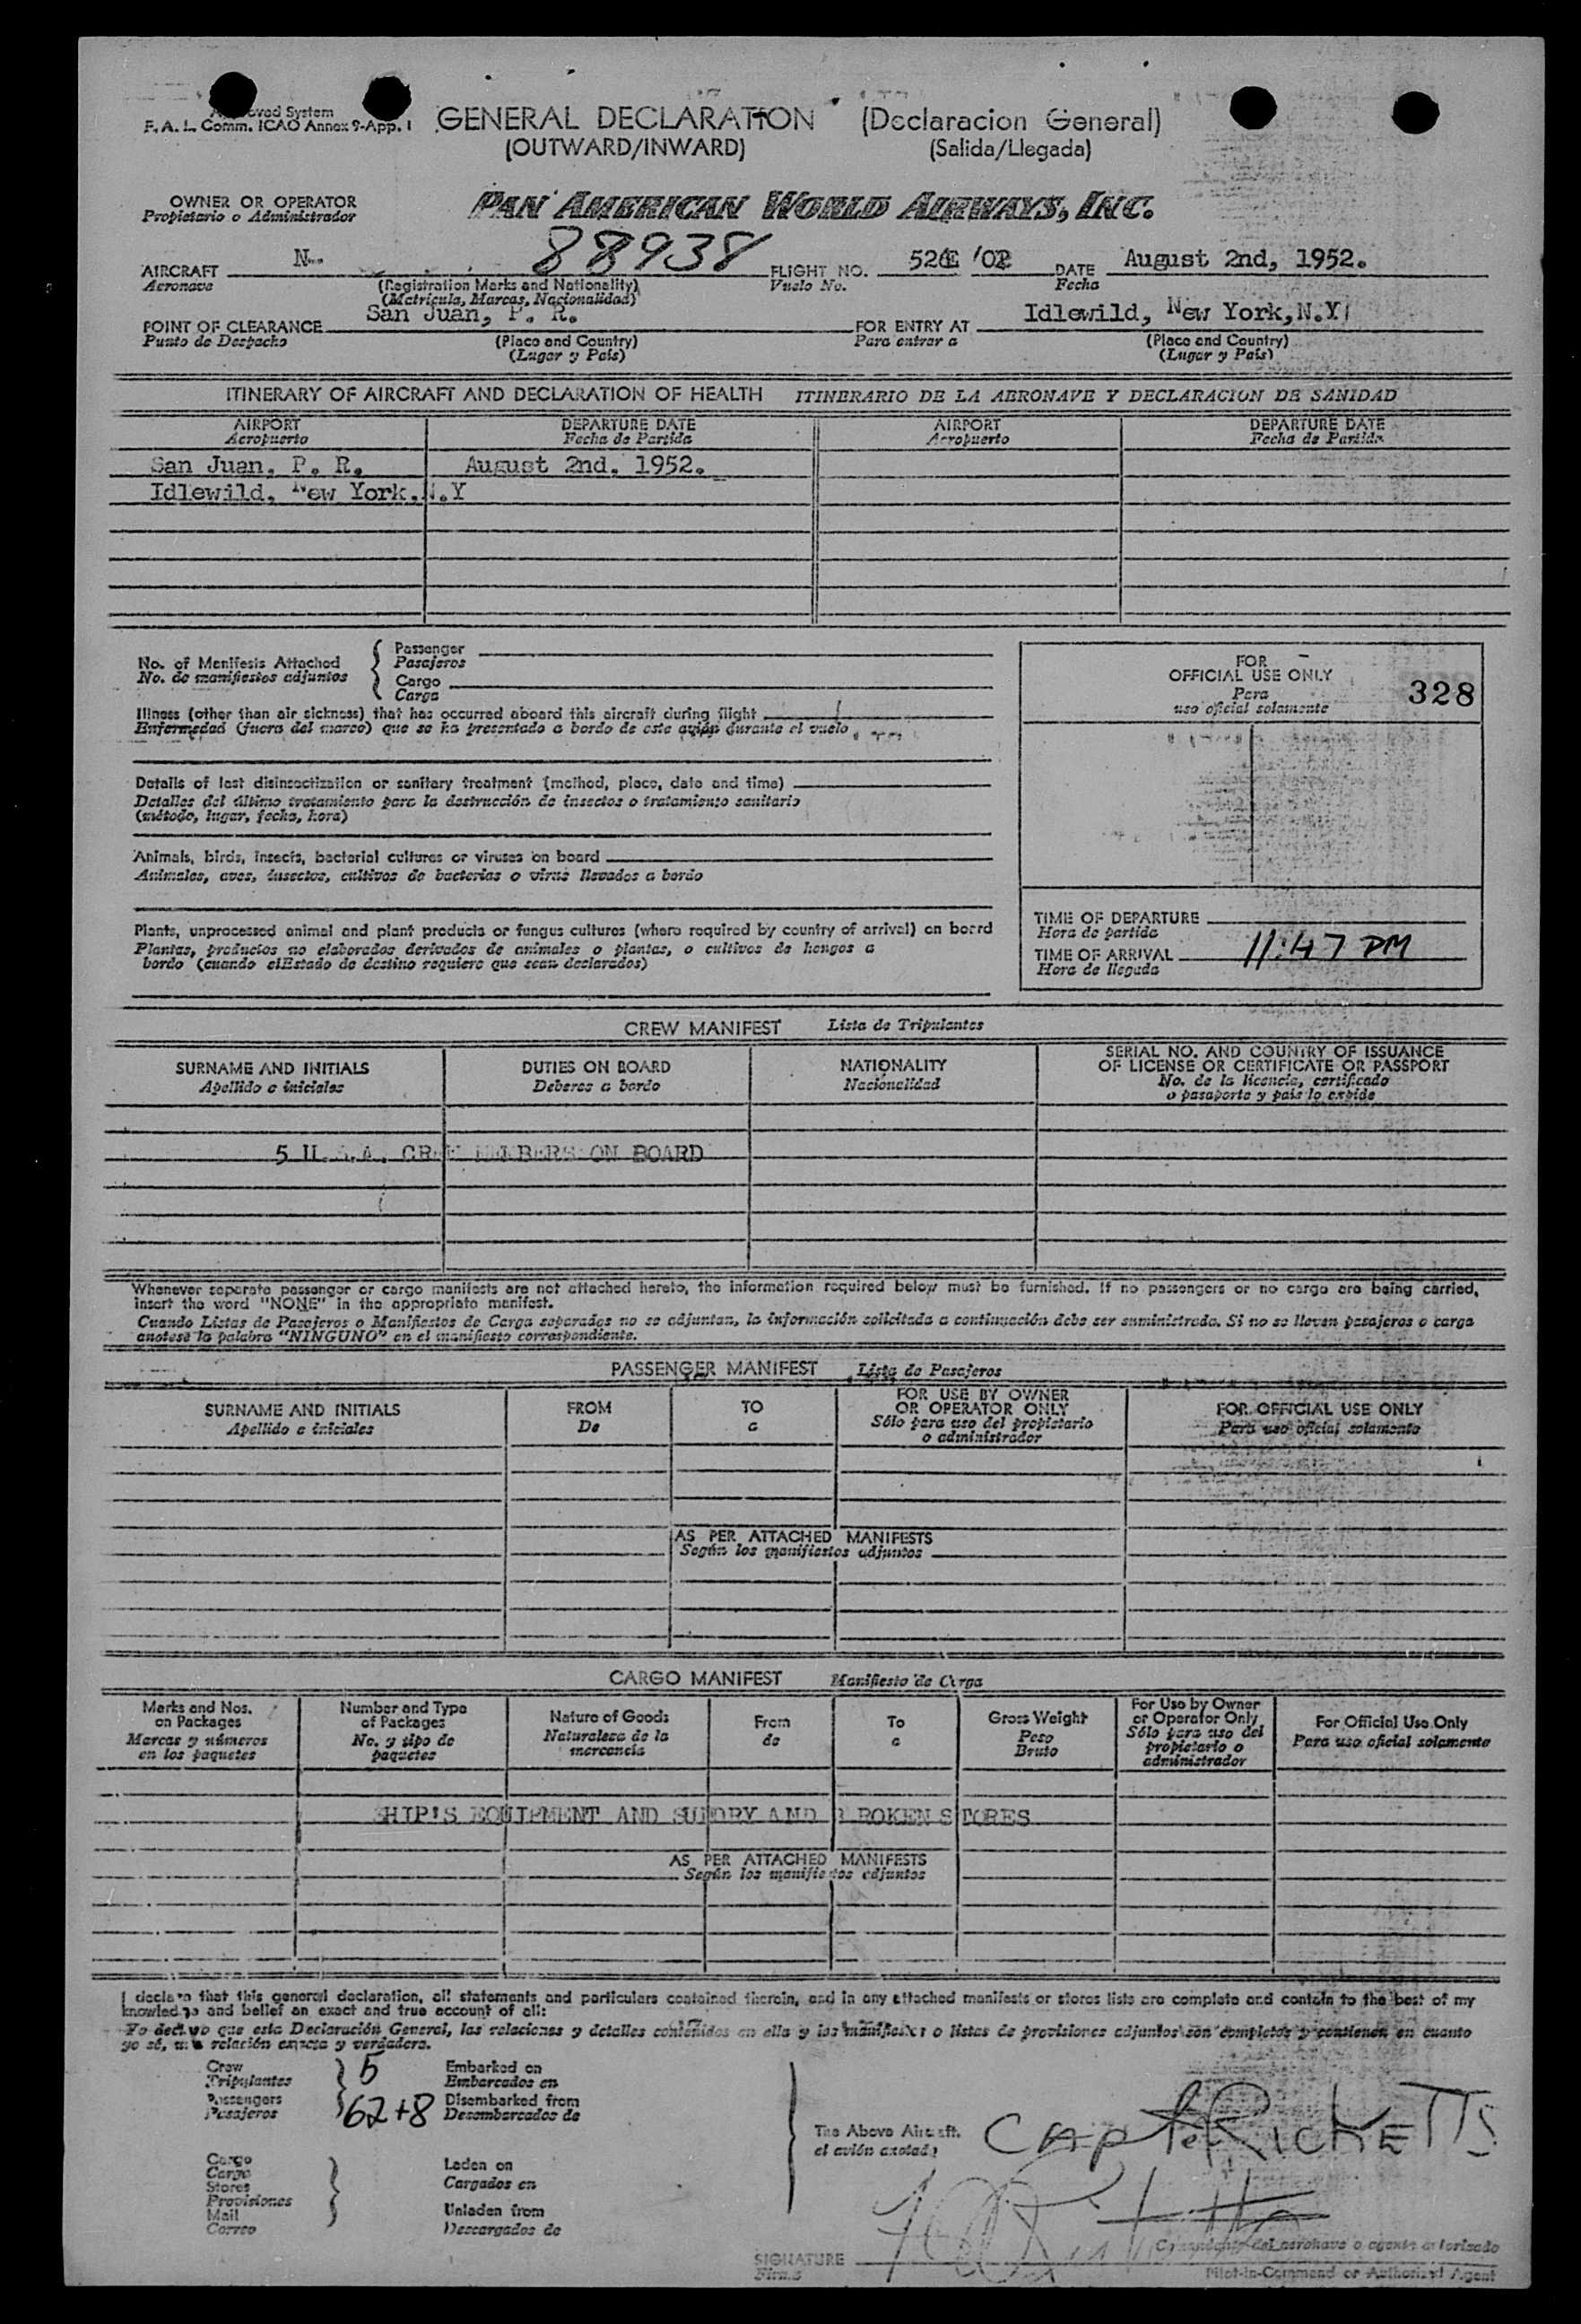 Approved System
F. A. L. Comm. ICAO Annex 9-App. 1
GENERAL DECLARATION (Declaracion General)
(OUTWARD/INWARD) (Salida/Llegada)
OWNER OR OPERATOR
Propietario o Administrador
PAN AMERICAN WORLD AIRWAYS, INC.
AIRCRAFT N 88938 FLIGHT NO. DATE August 2nd, 1952.
Aeronave (Registration Marks and Nationality) Vuelo No. Fecha
(Matricula, Marcas, Nacionalidad)
POINT OF CLEARANCE San Juan, P. R. FOR ENTRY AT Idlewild, New York, N.Y
Punto de Despacho (Place and Country) Para entrar a (Place and Country)
(Lugar y País) (Lugar y País)
ITINERARY OF AIRCRAFT AND DECLARATION OF HEALTH ITINERARIO DE LA AERONAVE Y DECLARACION DE SANIDAD
AIRPORT DEPARTURE DATE AIRPORT DEPARTURE DATE
Aeropuerto Fecha de Partida Aeropuerto Fecha de Partida
San Juan, P. R. August 2nd. 1952.
Idlewild, New York, N.Y
No. of Manifests Attached
No. de manifiestos adjuntos
Passenger
Pasajeros
Cargo
Carga
Illness (other than air sickness) that has occurred aboard this aircraft during flight
Enfermedad (fuera del mareo) que se ha presentado a bordo de este avión durante el vuelo
Details of last disinsectization or sanitary treatment (method, place, date and time)
Detalles del último tratamiento para la destrucción de insectos o tratamiento sanitario
(método, lugar, fecha, hora)
Animals, birds, insects, bacterial cultures or viruses on board
Animales, aves, insectos, cultivos de bacterias o virus llevados a bordo
Plants, unprocessed animal and plant products or fungus cultures (where required by country of arrival) on board
Plantas, productos no elaborados derivados de animales o plantas, o cultivos de hongos a
bordo (cuando elEstado de destino requiere que sean declarados)
FOR
OFFICIAL USE ONLY
Para
uso oficial solamente
328
TIME OF DEPARTURE
Hora de partida
TIME OF ARRIVAL 11:47 PM
Hora de llegada
CREW MANIFEST Lista de Tripulantes
SURNAME AND INITIALS DUTIES ON BOARD NATIONALITY SERIAL NO. AND COUNTRY OF ISSUANCE
OF LICENSE OR CERTIFICATE OR PASSPORT
Apellido e iniciales Deberes a bordo Nacionalidad No. de la licencia, certificado
o pasaporte y país lo expide
5 U.S.A. CREW MEMBERS ON BOARD
Whenever separate passenger or cargo manifests are not attached hereto, the information required below must be furnished. If no passengers or no cargo are being carried,
insert the word "NONE" in the appropriate manifest.
Cuando Listas de Pasajeros o Manifiestos de Carga separados no se adjuntan, la información solicitada a continuación debe ser suministrada. Si no se llevan pasajeros o carga
anotese la palabra "NINGUNO" en el manifiesto correspondiente.
PASSENGER MANIFEST Lista de Pasajeros
SURNAME AND INITIALS FROM TO FOR USE BY OWNER
OR OPERATOR ONLY FOR OFFICIAL USE ONLY
Apellido e iniciales De a Sólo para uso del propietario
o administrador Para uso oficial solamente
AS PER ATTACHED MANIFESTS
Según los manifiestos adjuntos
CARGO MANIFEST Manifiesto de Carga
Marks and Nos.
on Packages
Marcas y números
en los paquetes
Number and Type
of Packages
No. y tipo de
paquetes
Nature of Goods
Naturaleza de la
mercancía
From
de
To
a
Gross Weight
Peso
Bruto
For Use by Owner
or Operator Only
Sólo para uso del
propietario o
administrador
For Official Use Only
Para uso oficial solamente
SHIP'S EQUIPMENT AND SUNDRY AND BROKEN STORES
AS PER ATTACHED MANIFESTS
Según los manifiestos adjuntos
I declare that this general declaration, all statements and particulars contained therein, and in any attached manifests or stores lists are complete and contain to the best of my
knowledge and belief an exact and true account of all:
Yo declaro que esta Declaración General, las relaciones y detalles contenidos en ella y los manifiestos o listas de provisiones adjuntos son completos y contienen en cuanto
yo sé, una relación exacta y verdadera.
Crew 5 Embarked on
Tripulantes Embarcados en
Passengers 62+8 Disembarked from
Pasajeros Desembarcados de
Cargo
Cargo
Stores
Provisiones
Mail
Correo
Laden on
Cargados en
Unladen from
Descargados de
The Above Aircraft.
el avión anotado
CAPT RICKETTS
SIGNATURE
Firma
Comandante del aeronave o agente autorizado
Pilot-in-Command or Authorized Agent